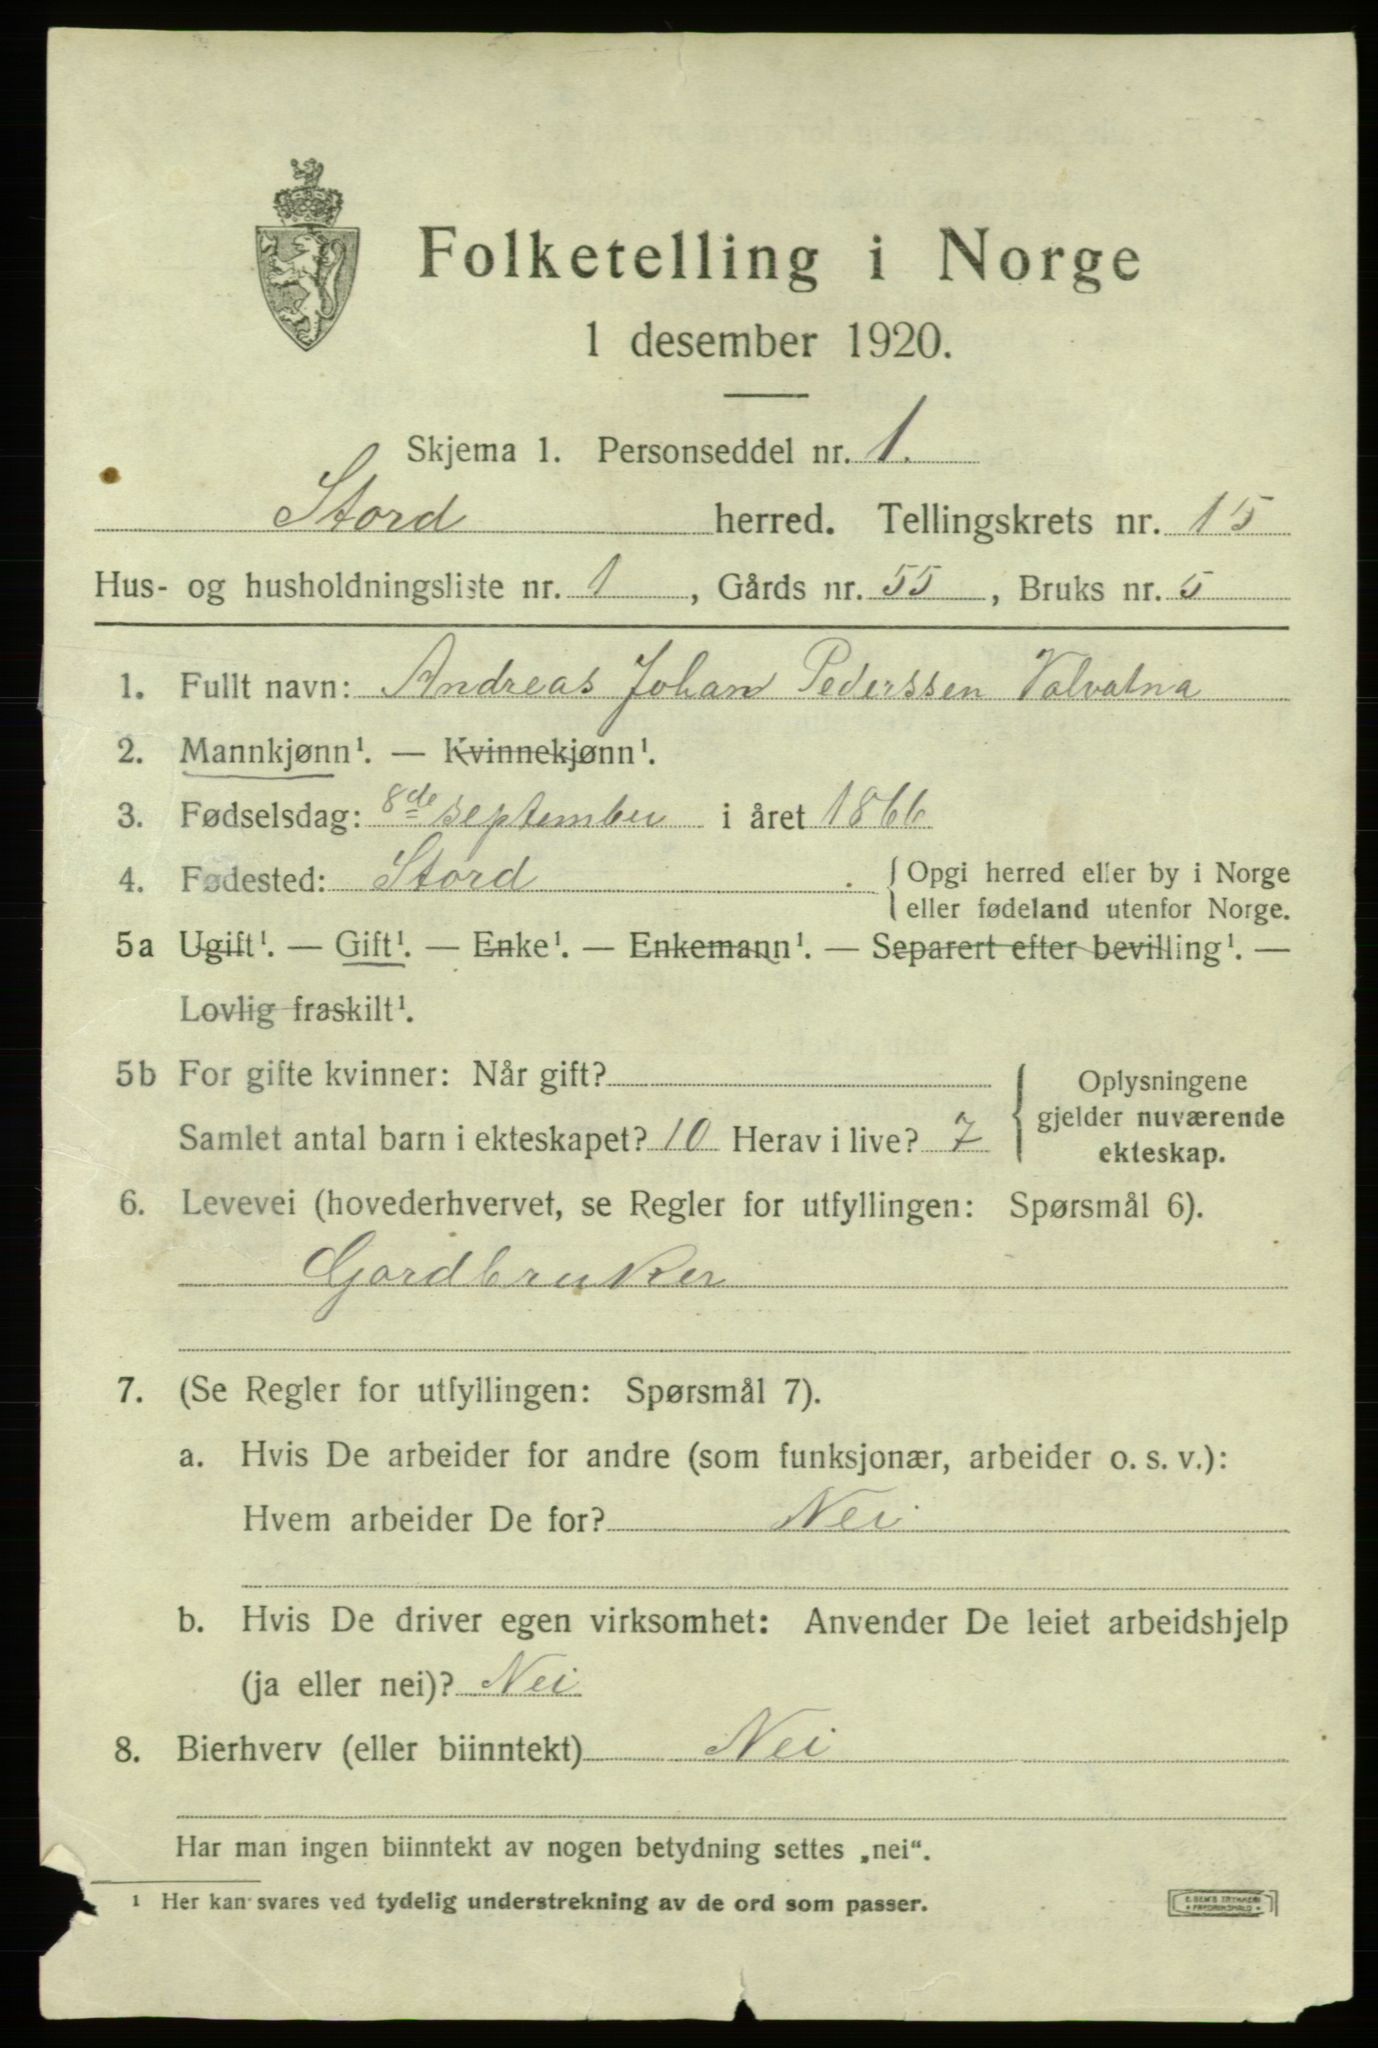 Folketelling i Norge
1 desember 1920.
Skjema 1. Personseddel nr. 1.
Stord herred. Tellingskrets nr. 15
Hus- og husholdningsliste nr. 1, Gårds nr. 55, Bruks nr. 5
1. Fullt navn: Andreas Johan Pederssen Valvatna
2. Mannkjønn¹. — Kvinnekjønn¹.
3. Fødselsdag: 8de september i året 1866
4. Fødested: Stord. { Opgi herred eller by i Norge
eller fødeland utenfor Norge.
5a Ugift¹. — Gift¹. — Enke¹. — Enkemann¹. — Separert efter bevilling¹. —
Lovlig fraskilt¹.
5b For gifte kvinner: Når gift?
Samlet antal barn i ekteskapet? 10 Herav i live? 7
{ Oplysningene
gjelder nuværende
ekteskap.
6. Levevei (hovederhvervet, se Regler for utfyllingen: Spørsmål 6).
Gordbruker
7. (Se Regler for utfyllingen: Spørsmål 7).
a. Hvis De arbeider for andre (som funksjonær, arbeider o. s. v.):
Hvem arbeider De for? Nei
b. Hvis De driver egen virksomhet: Anvender De leiet arbeidshjelp
(ja eller nei)? Nei
8. Bierhverv (eller biinntekt) Nei
Har man ingen biinntekt av nogen betydning settes „nei“.
¹ Her kan svares ved tydelig understrekning av de ord som passer.